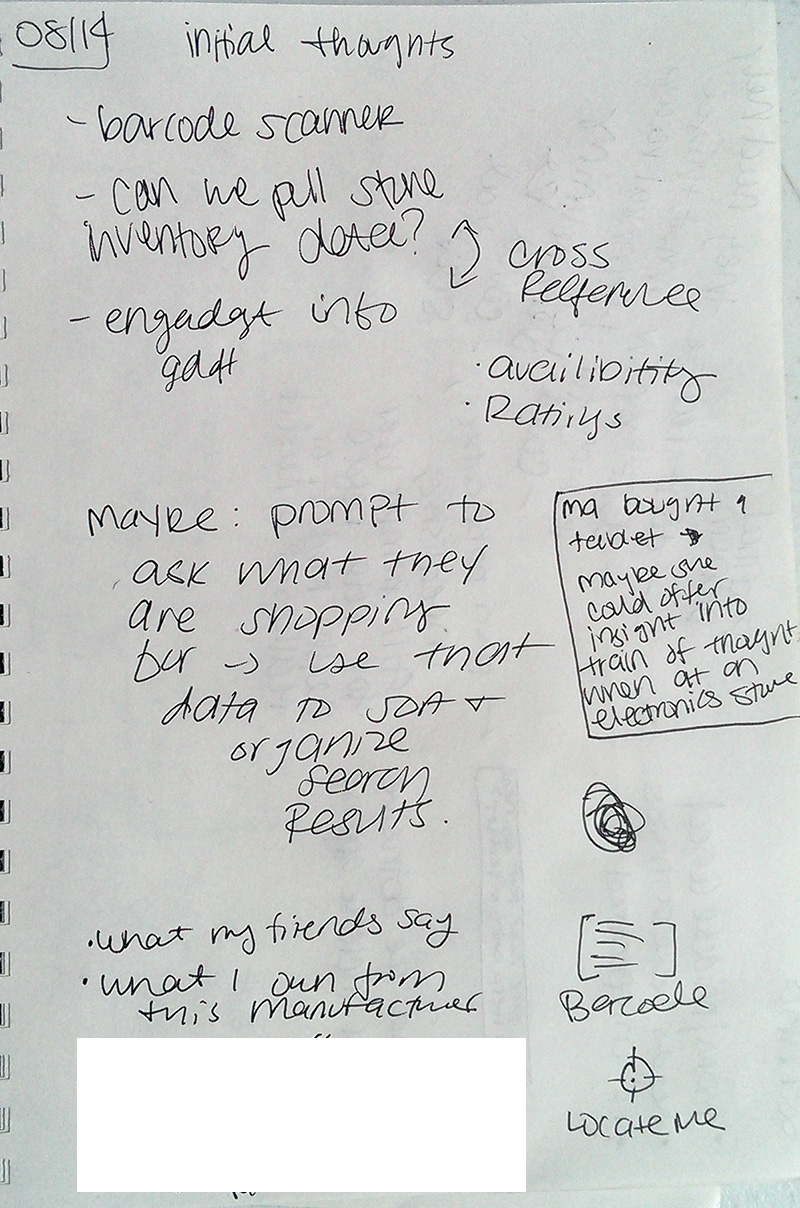 08/14 initial thoughts
- barcode scanner
- can we pull store
inventory data?
cross
Reference
- engadget info
gdgt
· availibitity
· Ratings
maybe: prompt to
ask what they
are shopping
for → use that
data to sort +
organize
search
Results.
ma bought a
tablet
maybe she
could offer
insight into
train of thought
when at an
electronics store
· what my friends say
· what I own from
this manufacturer
Barcode
Locate me